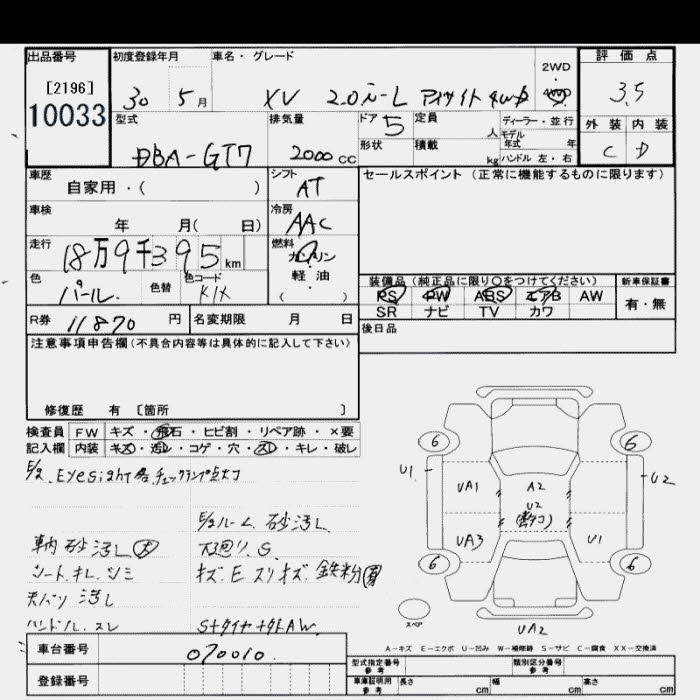 出品番号 初度登録年月 車名・グレード 評価点
[2196] 2WD
10033 30 5月 XV 2.0i-L アイサイト 4WD 4WD 3.5
型式 排気量 ドア 5 定員 人 ディーラー・並行 外装 内装
モデル年式 年
DBA-GT7 2000cc 形状 積載 kg ハンドル 左・右 C D
車歴 シフト セールスポイント (正常に機能するものに限ります)
自家用・( ) AT
車検 冷房
年 月( 日) AAC
走行 燃料
18万9千395km ガソリン
色 色替 色コード 軽油 装備品 (純正品に限り○をつけてください) 新車保証書
パール. K1X ( ) PS PW ABS エアB AW 有・無
R券 11870 円 名変期限 月 日 SR ナビ TV カワ
注意事項申告欄(不具合内容等は具体的に記入して下さい) 後日品
修復歴 有 [箇所 ]
検査員 FW キズ・飛石・ヒビ割・リペア跡・×要
記入欄 内装 キズ・汚レ・コゲ・穴・スレ・キレ・破レ
Eyesight チェックランプ点灯
ルーム 砂汚レ
車内 砂汚レ 大 下廻り.S.
シート.キレ.シミ キズ.E スリキズ.鉄粉
天バリ 汚レ
ハンドル.スレ S+タイヤ+タトAW.
6 6
U1 UA1 A2 U2
U2
UA3 U1
6 6
スペア UA2
A-キズ E-エクボ U-凹み W-補修跡 S-サビ C-腐食 XX-交換済
車台番号 070010. 型式指定番号 参考 類別区分番号 参考
登録番号 車庫証明用 参考 長さ cm 幅 cm 高さ cm